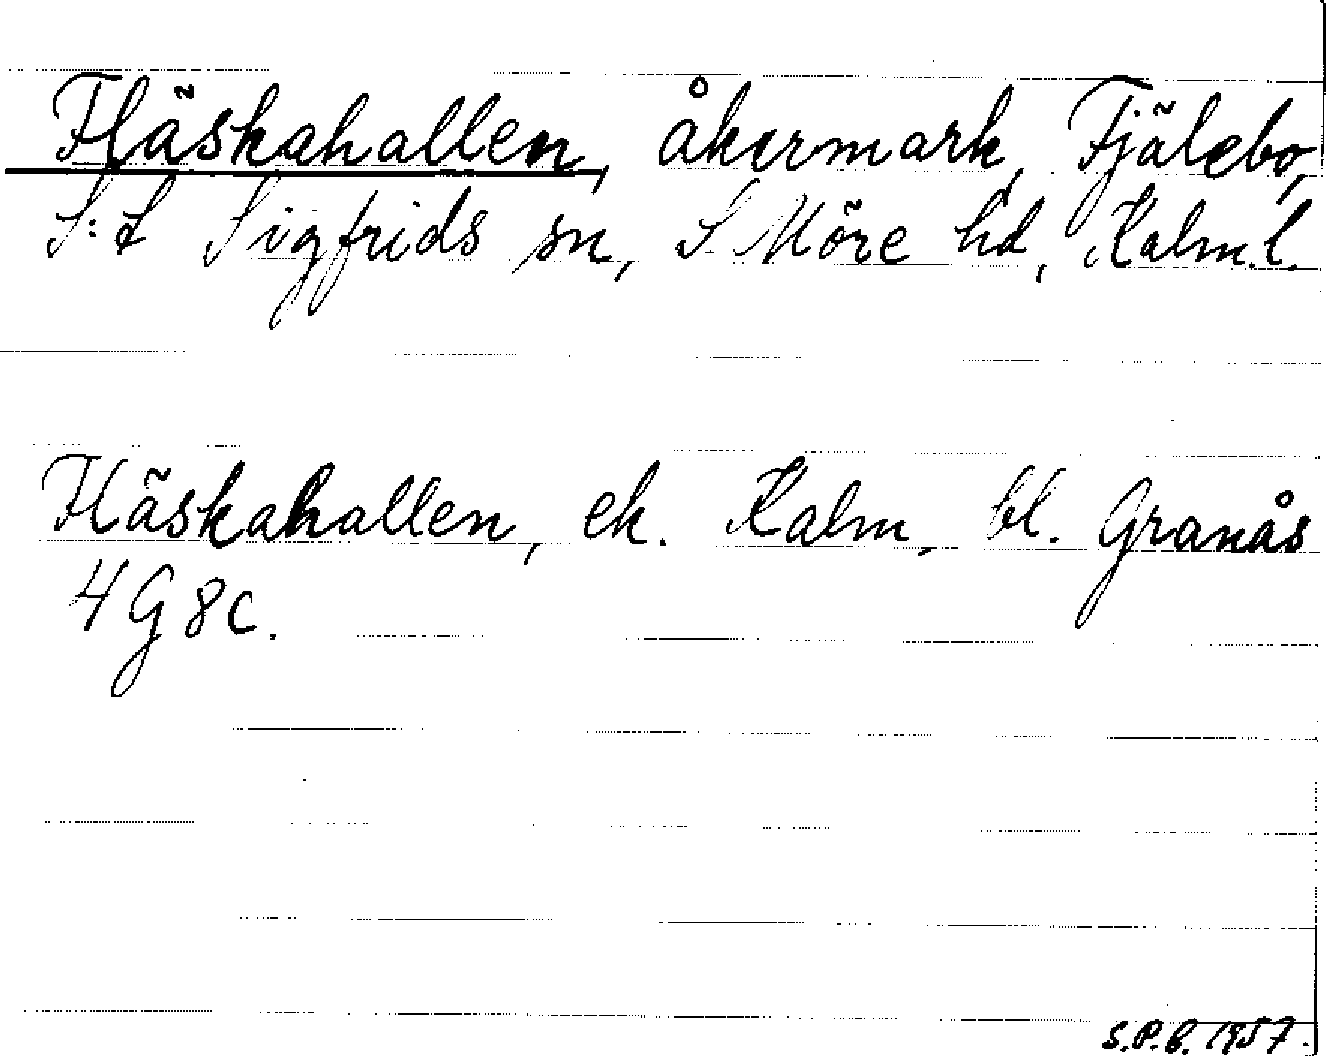 Fläskahallen, åkermark, Fjälebo,
S:t Sigfrids sn, S Möre hd, Kalm.l.
Fläskahallen, ek. Kalm. bl. Granås
4G 8c.
S.P.B. 1957.